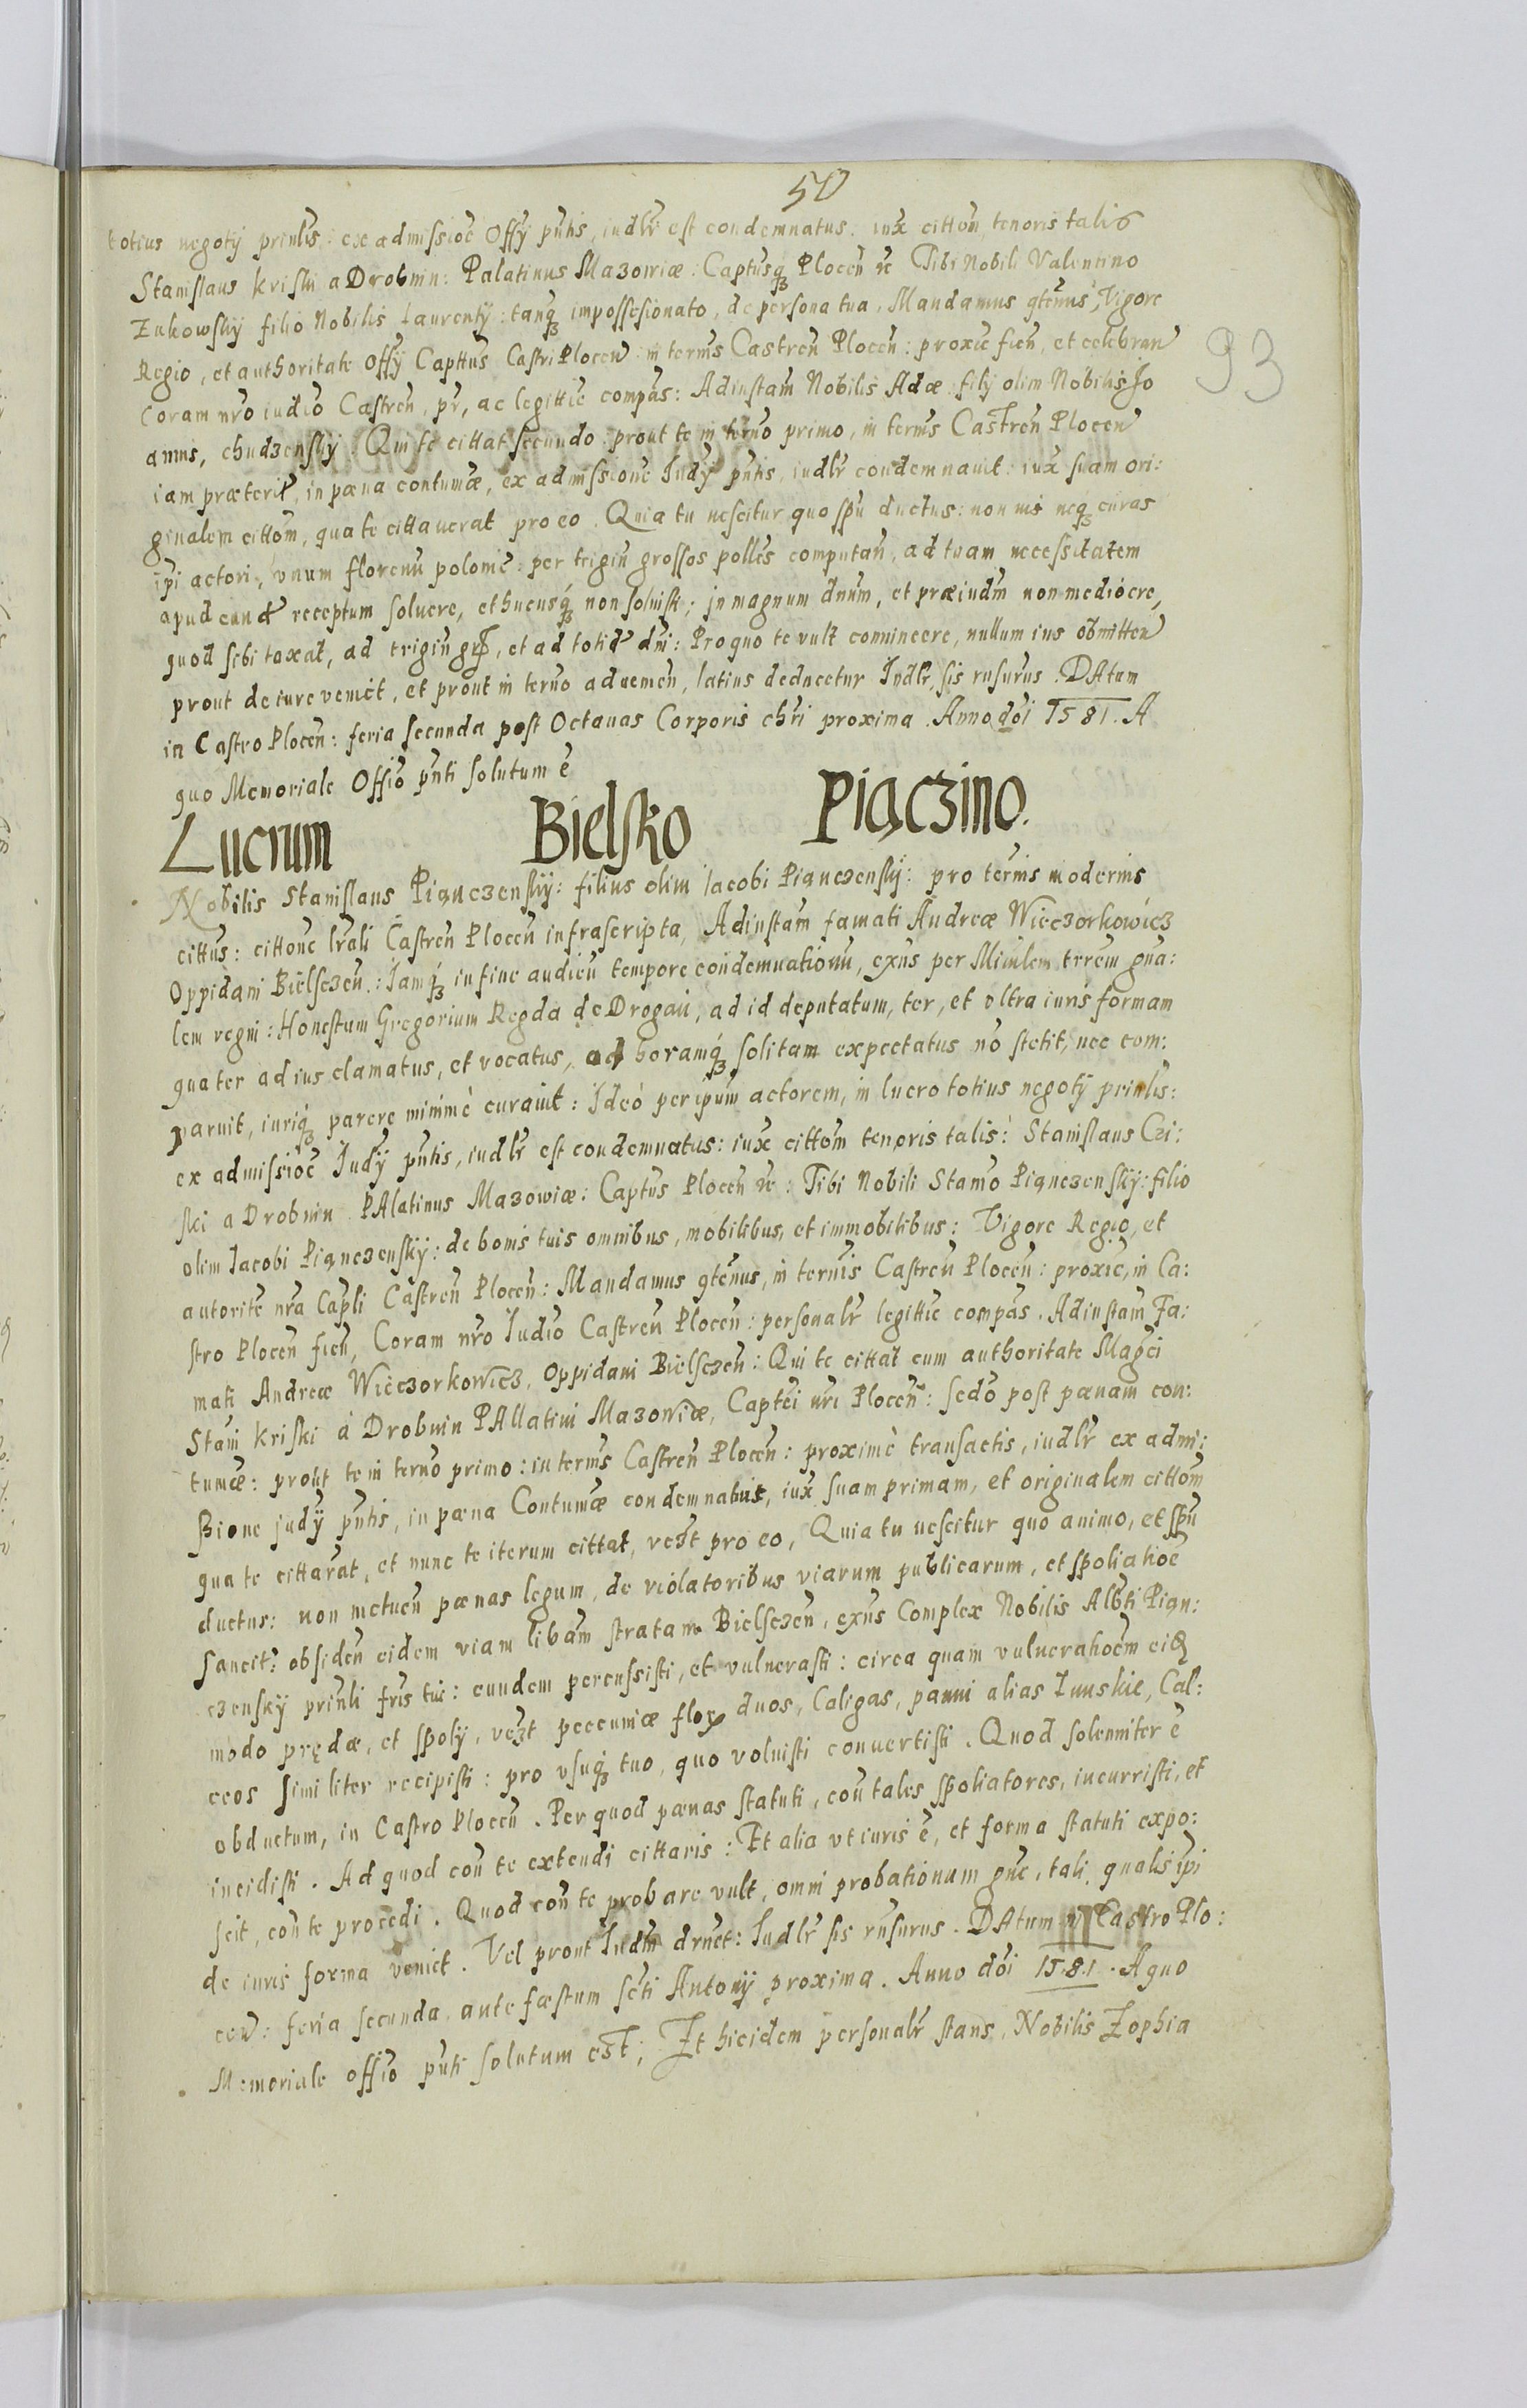 50
93
totius negotÿ prinlis: ex admissioē Offÿ pn̄tis, iudlr est condemnatus. iux cittōm tenoris talis
Stanislaus kriski a Drobnin: Palatinus Mazowiæ: Captusqȝ Plocen̄ &c Tibi Nobili Valentino
Zukowskÿ filio Nobilis Laurentÿ: tanqȝ impossesionato, de persona tua, Mandamus qtenus, Vigore
Regio, et authoritate Offÿ Capttus Castri Plocen̄ in termis Castren̄ Plocen̄: proxie fien̄, et celebran̄
Coram nro iudio Castren̄, pr, ac legittie compas: Ad instam Nobilis Adæ filÿ olim Nobilis Jo
annis, chudzenskÿ. Qui te cittat secundo prout te in terno primo, in termis Castren̄ Plocen̄
iam præterit, in pæna contumæ, ex admissione Judÿ pn̄tis, iudlr condemnauit: iux suam ori:
ginalem cittom, qua te cittauerat pro eo. Quia tu nescitur quo spu ductus: non uis neqȝ curas
ipi actori, vnum florenu polonie: per trigin grossos polles computan̄, ad tuam necessitatem
apud eund receptum soluere, et hucusqȝ non soluisti; jn magnum dnum, et præiudm non mediocre,
quod sibi taxat, ad trigin grß, et ad totid dni: Pro quo te vult conuincere, nullum ius obmitten̄
prout de iure veniet, et prout in terno aduenien̄, latius deducetur Judlr sis rusurus. DAtum
in Castro Plocen̄: feria secunda post Octauas Corporis chri proxima. Anno doi 1581. A
quo Memoriale Offio pn̄ti solutum ē
Lucrum Bielsko Piączino.
Nobilis Stanislaus Piąnczenskÿ: filius olim Jacobi Piąnczenskÿ: pro termis modernis
cittus: cittone lrali Castren̄ Plocen̄ infrascripta, Ad instam famati Andreæ Wieczorkowicz
Oppidani Bielsczen̄.: Jamqȝ in fine audien̄ tempore condemnationu, exns per Minlem trrem gna:
lem regni: Honestum Gregorium Regda de Drogan̄, ad id deputatum, ter, et vltra iuris formam
quater ad ius clamatus, et vocatus, ad horamqȝ solitam expectatus nō stetit, nec com:
paruit, iuriqȝ parere minimè curauit: Ideò per ipum actorem, in lucro totius negotÿ prinlis:
ex admissioē Judÿ pn̄tis, iudlr est condemnatus: iux cittom tenoris talis: Stanislaus Cri:
ski a Drobnin PAlatinus Mazowiæ: Captus Plocen̄ &c: Tibi Nobili Stanio Piąnczenskÿ: filio
olim Jacobi Piąnczenskÿ: de bonis tuis omnibus, mobilibus, et immobilibus: Vigore Regio, et
autorite nra Capli Castren̄ Plocen̄: Mandamus qtenus, in ternis Castren̄ Plocen̄: proxie, in Ca:
stro Plocen̄ fien̄, Coram nro Iudio Castren̄ Plocen̄: personalr legittie compas. Ad instam Fa:
mati Andreæ Wieczorkowicz, Oppidani Bielsczen̄: Qui te cittat cum authoritate Magci
Stani kriski à Drobnin PAllatini Mazowiæ, Captei nri Plocen̄: sedo post pænam con:
tumæ: prout te in terno primo: in termis Castren̄ Plocen̄: proximè transactis, iudlr ex admi:
ßione judÿ pn̄tis, in pæna Contumæ condemnabit, iux suam primam, et originalem cittom
qua te cittarat, et nunc te iterum cittat, vcȝt pro eo, Quia tu nescitur quo animo, et spu
ductus: non metuen̄ pænas legum, de violatoribus viarum publicarum, et spoliatioē
sancit: obsiden̄ eidem viam libam stratam Bielsczen̄, exns Complex Nobilis Albti Piąn:
czenskÿ prinli fris tui: eundem percussisti, et vulnerasti: circa quam vulneratioēm eiq
modo prędæ, et spolÿ, vcȝt pecuniæ flor duos, Caligas, panni alias Lunskie, Cal:
ceos similiter recipisti: pro vsuqȝ tuo, quo voluisti conuertisti. Quod solenniter ē
obductum, in Castro Plocen̄. Per quod pænas statuti, con̄ tales spoliatores, incurristi, et
incidisti. Ad quod con̄ te extendi cittaris: Et alia vt iuris ē, et forma statuti expo:
scit, con̄ te procedi. Quod con̄ te probare vult, omni probationum gne, tali, qualis ipi
de iuris forma veniet. Vel prout Judm druet: Judlr sis rusurus. DAtum in Castro Plo:
cen̄: feria secunda, ante fæstum scti Antonÿ proxima. Anno doi 1581. A quo
Memoriale offio pn̄ti solutum est; Et hicidem personalr stans, Nobilis Zophia